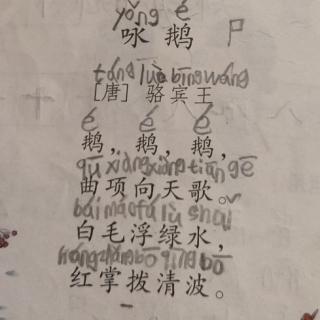 yǒng é
咏 鹅 尸
táng luò bīn wáng
[唐] 骆宾王
é é é
鹅，鹅，鹅，
qū xiàng xiàng tiān gē
曲项向天歌。
bái máo fú lǜ shuǐ
白毛浮绿水，
bō qīng bō
红掌拨清波。